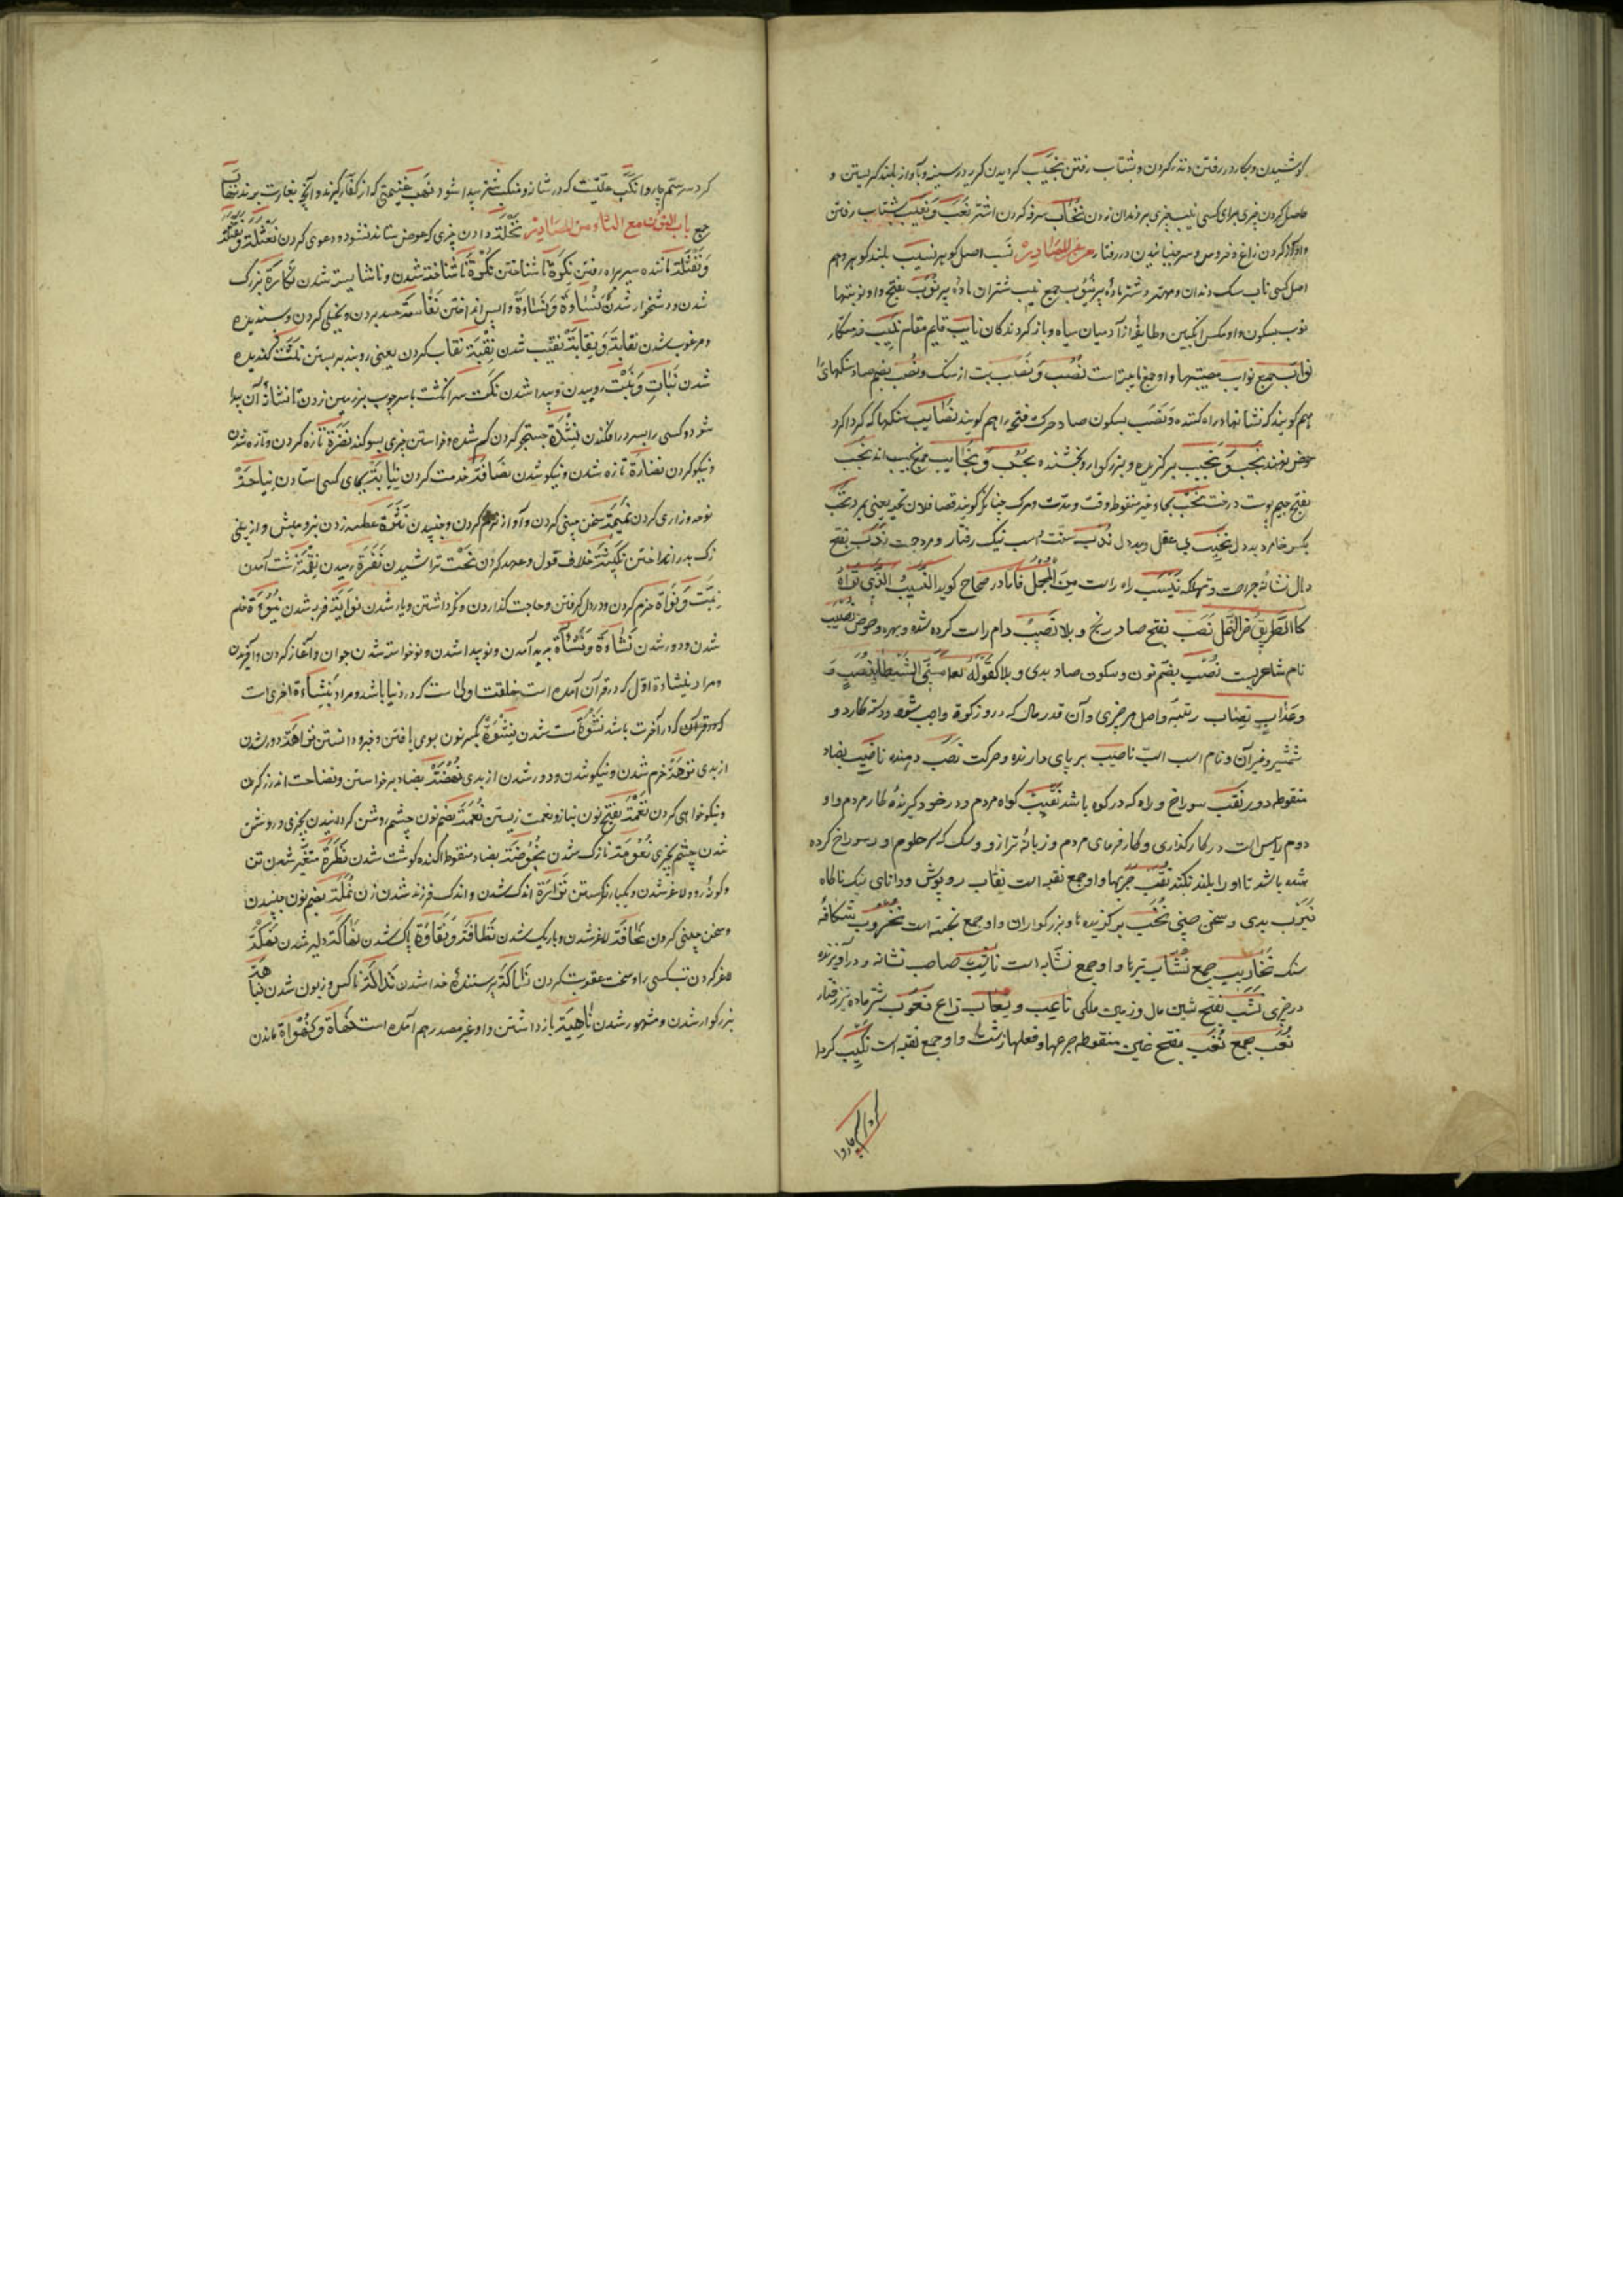 کوشیدن و بکار در رفتن و نذر کردن و بشتاب رفتن نَحیب کردیدن کریه در سینه و بآواز بلند کریستن و
حاصل کردن چیزی برای کسی نیب چیزی بر دندان زدن نُحاب سرفه کردن اشتر نَعْب و نَعیب بشتاب رفتن
و آواز کردن زاغ و خروس و سر جنبانیدن در رفتار من غیر المصادر نَسَب اصل کوهر نسیب بلند کوهر و هم
اصل کسی ناب سک دندان و مهتر و شتر ماده پیر نُیُوب جمع نِیب شتران ماده پیر نُوَب بفتح واو نوبتها
نوب بسکون واو مکس انکبین و طایفهٔ از آدمیان سیاه و باز کردندکان نایب قایم مقام
نوائب جمع نوایب مصیبتها و او جمع نایبه است نُصُب وَ نَصَب بت از سنک و نُصُب بضم صاد سنکهای را
هم کویند که نشانها در راه کنند و نَصَب بسکون صاد و حرکت فتحه را هم کویند نَصایب سنکها که کرداکرد
حوض نهند نجیب برکزیده و بزرکوار و بخشنده نُجُب وَ نَجایب جمع نجیب اند نَجَب
بفتح جیم پوست درخت نَحْب بحاء غیر منقوطه وقت و مدت و مرک چنانکه کویند قضا فلان نحبه یعنی بمرد نَخِب
بکسر خا مرد بددل نَخیب بی عقل و بددل نَدْب سنت و اسب نیک رفتار و مرد چست نَدَب بفتح
دال نشانهٔ جراحت و تهلکه نَیْسَب راه راست مِنَ المُجْمَل فامّا در صحاح کوید النَّیْسَبُ الّذی تَراهُ
کالطَّریقِ مِنَ النَّمْل نَصَب بفتح صاد رنج و بلا نَصیب دام راست کرده شده و بهره و حوض نُصَیب
نام شاعریست نُصْب بضم نون و سکون صاد بدی و بلا کَقَوْلِهِ تعا مَسَّنِیَ الشَّیْطانُ بِنُصْبٍ وَ
وعَذاب نِصاب رتبه و اصل هر چیزی و آن قدر مال که در و زکوة واجب شود و دستهٔ کارد و
شمشیر و غیر آن و نام اسب است ناصب بر پای دارنده و حرکت نصب دهنده ناضِب بضاد
منقوطه دور نَقْب سوراخ و راه که در کوه باشد نَقیب کواه مردم و در خود کیرندهٔ کار مردم و او
دوم رئیس است در کارکذاری و کارفرمای مردم و زبانهٔ ترازو و سک که سر حلقوم او را سوراخ کرده
شده باشد تا او را بلند نکند نُقَب جربها و او جمع نقبه است نِقاب روپوش و دانای نیک ناکاه
نَیْرَب بدی و سخن چینی نُخَب برکزیده ها و بزرکواران و او جمع نخبه است نُخْروب شکافهٔ
سنک نَخاریب جمع نُشّاب تیرها و او جمع نشّابه است ناشِب صاحب نشانه و درآویزنده
در چیزی نَشَب بفتح شین مال و زمین ملکی ناعِب و نعّاب زاغ نَعوب شتر ماده تیز رفتار
نُعُب جمع نُغَب بفتح غین منقوطه جرعها و فعلها زشت و او جمع نغبه است نَکیب کردا
کرد سم چاروا

کرد سر سم چاروا نَکَب علتیست که در شانه و منکب شتر پیدا شود نَهْب غنیمتی که از کفار کیرند و آنچه بغارت برند نِهاب
جمع باب النون مع التاء من المصادر نِحْلَة دادن چیزی که عوض ستانده نشود و دعوی کردن نَعْثَلَة وَ نَقْثَلَة
وَ نَقْثَلَة مانند پیر براه رفتن نَکِرَة ناشناختن نُکْرَة ناشناخته شدن و ناشایسته شدن نَکارَة بزرک
شدن و دشخوار شدن نُسْاوَة وَ نَساوَة واپس انداختن نَفاسَة حسد بردن و بخیلی کردن و پسندیده
و مرغوب شدن نَقابَة وَ نِقابَة نقیب شدن نِقْبَة نقاب کردن یعنی روبند بربستن
شدن نَبات وَ نَبْت روییدن و پیدا شدن نَکْت سر انکشت یا سر چوب بر زمین زدن تا نشانهٔ آن پیدا
شود و کسی را بسر در افکندن نِشْدَة جستجو کردن کم شده و خواستن چیزی بسوکند نَضْرَة تازه کردن و تازه شدن
و نیکو کردن نَضارَة تازه شدن و نیکو شدن نِصافَة خدمت کردن نِیابَة بجای کسی استادن نِیاحَة
نوحه و زاری کردن نَمیمَة سخن چینی کردن و آواز نرم کردن و جنبیدن نَثْرَة عطسه زدن بز و میش و از بینی
زک بدر انداختن نَکیثَة خلاف قول و عهد کردن نَحْت تراشیدن نَفْرَة رمیدن نِقْمَة زشت آمدن
نِیَّة وَ نَواة عزم کردن و در دل کرفتن و حاجت کذاردن و نکه داشتن و یار شدن نَوایَة فربه شدن نُیُوءَة خام
شدن و دور شدن نَشاءَة وَ نَشْأَة پدید آمدن و نو پیدا شدن و نوخواسته شدن جوان و آغاز کردن و آفریدن
و مراد بنشاءة اوّل که در قرآن آمده است خلقت اولی است که در دنیا باشد و مراد بنشاءة اخری است
که در قرآن که در آخرت باشد نَشْوَة مست شدن نِشْوَة بکسر نون بوی یافتن و خبر دانستن نَزاهَة دور شدن
از بدی نُزْهَة خرم شدن و نیکو شدن و دور شدن از بدی نُهْضَة بضاد برخواستن و نصاحت اندرز کردن
و نیکوخواهی کردن نَعْمَة بفتح نون بناز و نعمت زیستن نُعْمَة بضم نون چشم روشن کردانیدن بچیزی و روشن
شدن چشم بچیزی نُعُومَة نازک شدن نُحُوضَة بضاد منقوط اکنده کوشت شدن نَظْرَة متغیر شدن تن
و کونهٔ رو و لاغر شدن و یکبار نکرستن نَزارَة اندک شدن و اندک فرزند شدن زن نُمْلَة بضم نون جنبیدن
و سخن چینی کردن نَحافَة لاغر شدن و باریک شدن نَظافَة وَ نَقاوَة پاک شدن نَهاکَة دلیر شدن نَهْکَة
لاغر کردن تب کسی را و سخت عقوبت کردن نَساکَة پرستندهٔ خدا شدن نَذالَة ناکس و زبون شدن نَباهَة
بزرکوار شدن و مشهور شدن ناهِیَة بازداشتن و او غیر مصدر هم آمده است نَقاة وَ نُقْواة ماندن